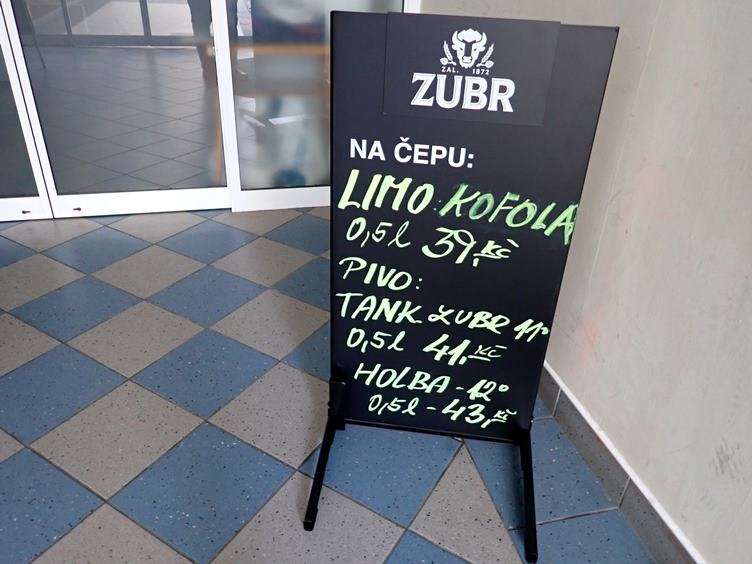 ZAL. 1872
ZUBR
NA ČEPU:
LIMO: KOFOLA
0,5l 39,Kč
PIVO:
TANK ZUBR 11°
0,5l 41,Kč
HOLBA - 12°
0,5l - 43,Kč